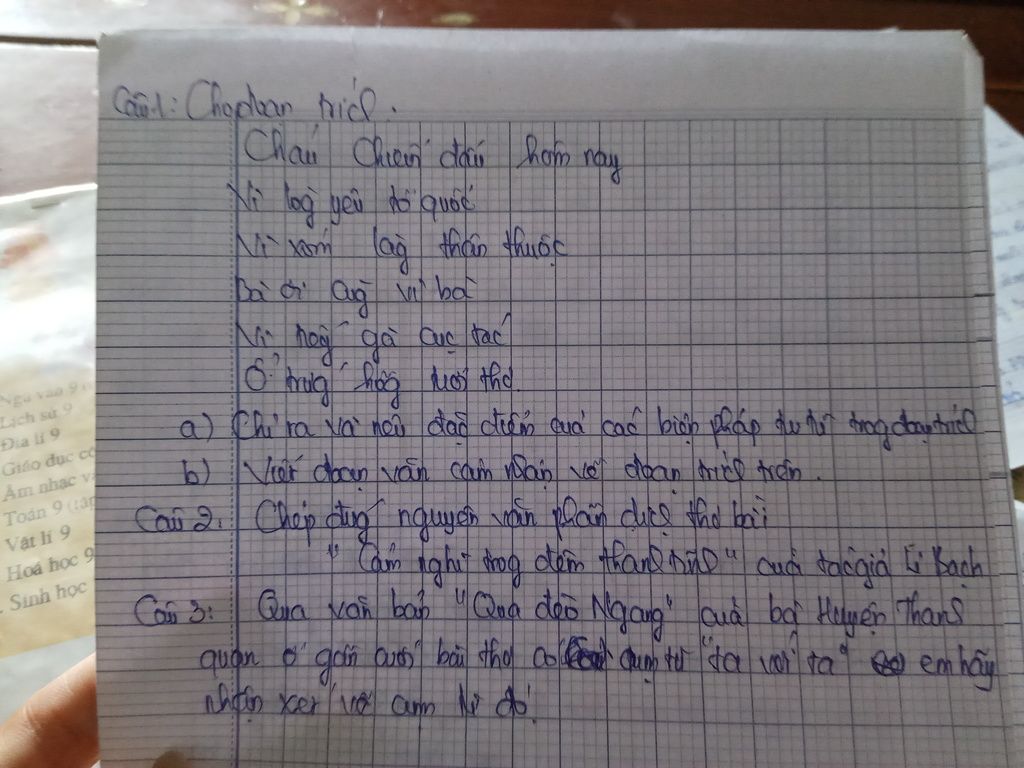 Câu 1: Cho đoạn trích.
Cháu chiến đấu hôm nay
Vì lòng yêu tổ quốc
Vì xóm làng thân thuộc
Bà ơi cũng vì bà
Vì tiếng gà cục tác
Ổ trứng hồng tuổi thơ.
a) Chỉ ra và nêu đặc điểm của các biện pháp tu từ trong đoạn trích
b) Viết đoạn văn cảm nhận về đoạn trích trên.
Câu 2. Chép đúng nguyên văn phần dịch thơ bài
"Cảm nghĩ trong đêm thanh tĩnh" của tác giả Lí Bạch
Câu 3: Qua văn bản "Qua đèo Ngang" của bà Huyện Thanh
quan ở gần cuối bài thơ có cụm từ "ta với ta" em hãy
nhận xét về cụm từ đó.
Ngữ văn 9
Lịch sử 9
Địa lí 9
Giáo dục cô
Âm nhạc v
Toán 9 (tập
Vật lí 9
Hoá học 9
Sinh học